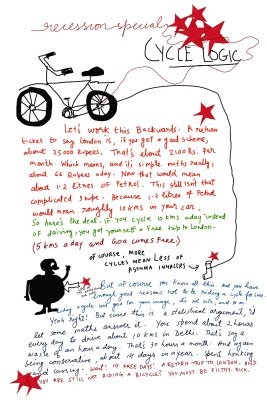 recession special
CYCLE LOGIC
Let's work this Backwards. A return
ticket to say London is, if you get a good scheme,
about 25000 rupees. That's about 2100 Rs. Per
month. Which means, and it's simple maths really,
about 66 Rupees aday. Now that would mean
about 1.2 Litres of Petrol. This still isn't that
complicated I hope. Because 1.2 litres of Petrol
would mean roughly 10 kms in your car.
So here's the deal. if you cycle 10 kms aday instead
of driving, you get yourself a free trip to London.
(5 kms a day and Goa comes Free.)
OF COURSE, MORE
CYCLES MEAN LESS OF
ASTHMA INHALERS
But of course you know all this. And you have
enough good reasons not to be riding a cycle for sure.
cycle will your image, its not safe, and
Yeah right! But since this is a statistical argument, I'd
let some maths answer it. You spend about 2 hours
every day to drive about 10 kms in Delhi. That's say a
waste of an hour a day. That's 30 hours a month. And again
being conservative, about 14 days in a year. Spent honking
and cursing. Wow! 14 FREE DAYS. A RETURN TRIP TO LONDON. AND
YOU ARE STILL NOT RIDING A BICYCLE? YOU MUST BE FILTHY. RICH.